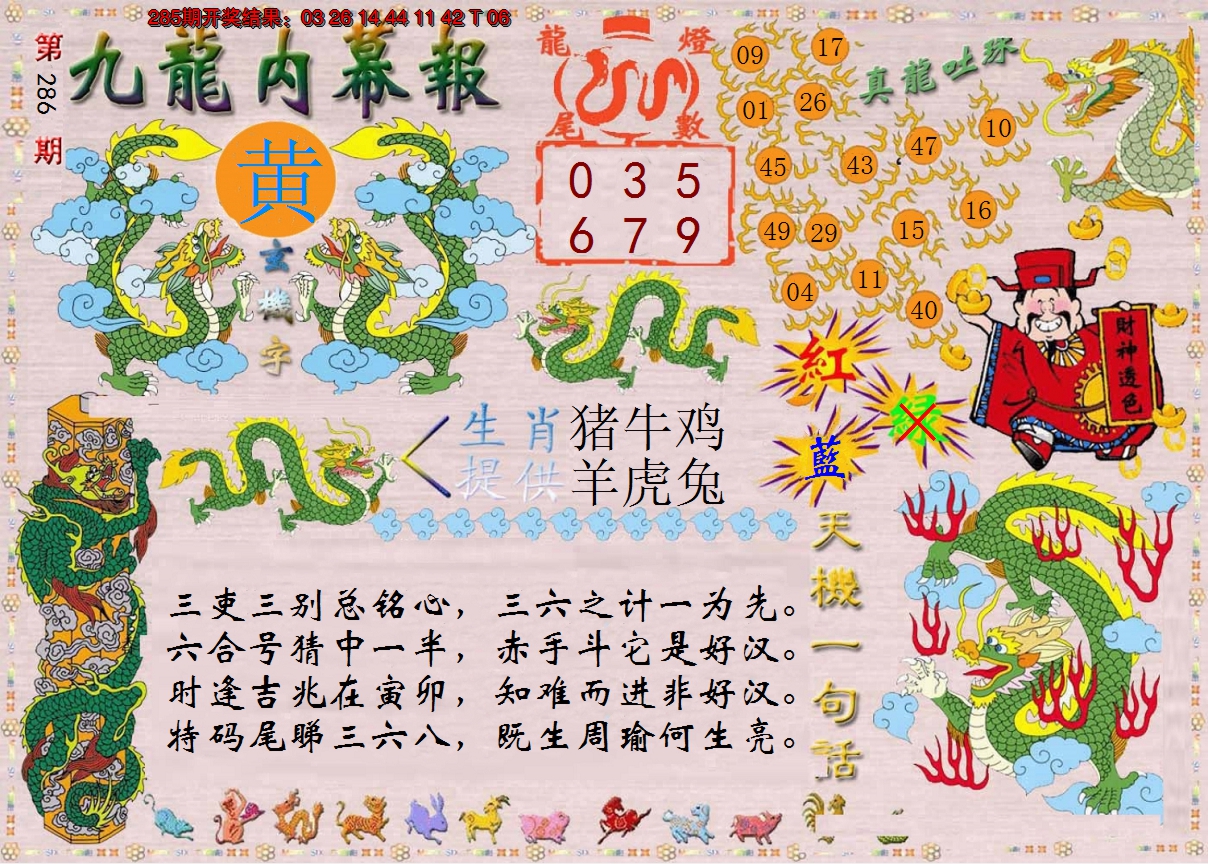 285期开奖结果：03 26 14 44 11 42 T 06
第286期
九龍内幕報
黄
玄機字
龍燈
尾數
0 3 5
6 7 9
真龍吐珠
09 17
01 26
45 43 47 10
49 29 15 16
04 11 40
財神透色
紅
绿
藍
生肖 猪牛鸡
提供 羊虎兔
天機一句話
三吏三别总铭心，三六之计一为先。
六合号猜中一半，赤手斗它是好汉。
时逢吉兆在寅卯，知难而进非好汉。
特码尾睇三六八，既生周瑜何生亮。